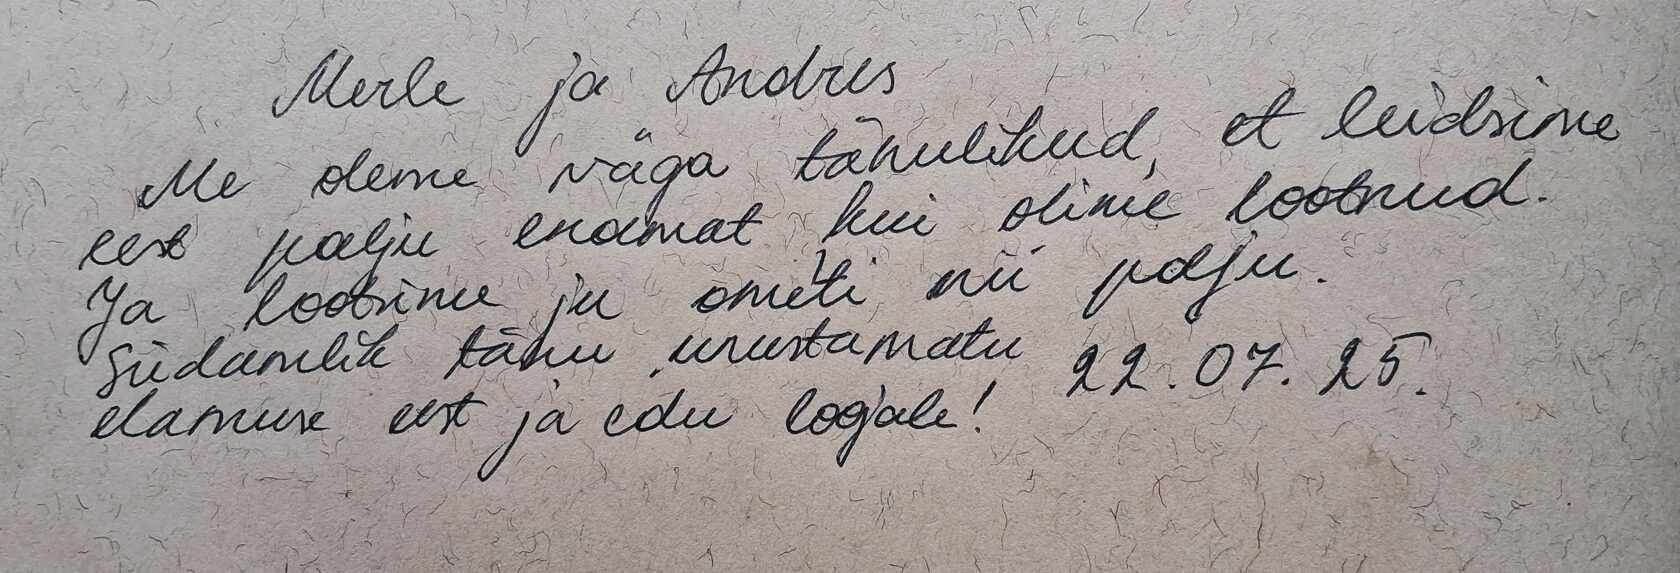 Merle ja Andres
Me oleme väga tänulikud, et leidsime
eest palju enamat kui olime lootnud.
Ja lootsime ju ometi nii palju.
Südamlik tänu unustamatu
elamuse eest ja edu loojale! 22.07.25.